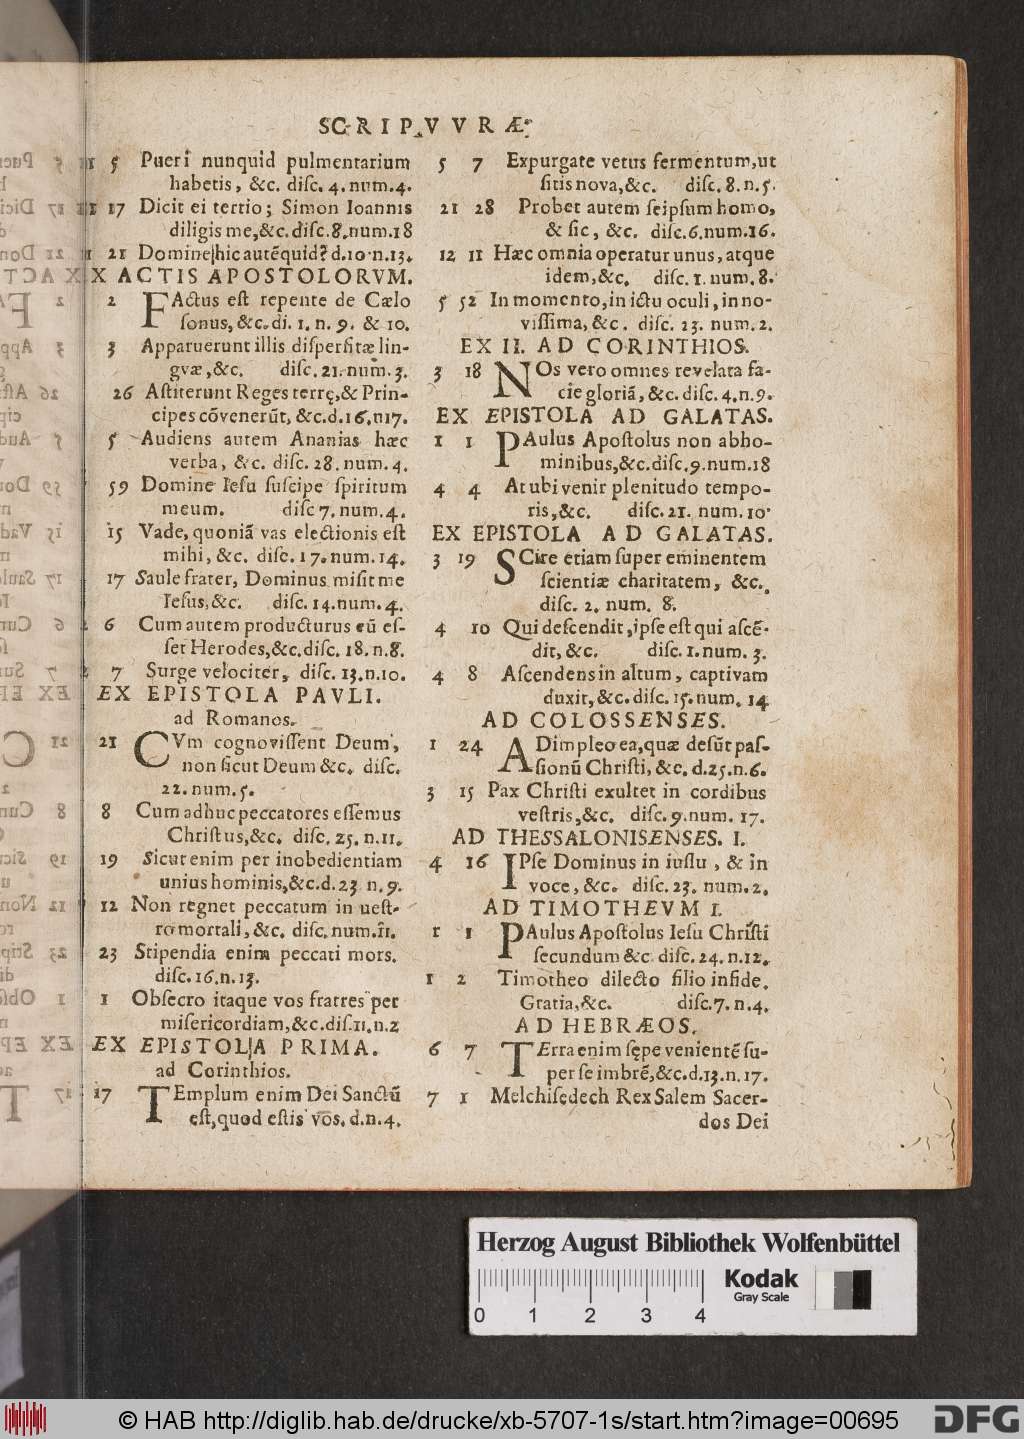 SCRIPVVRÆ.
5 Pueri nunquid pulmentarium
habetis, &c. disc. 4. num. 4.
17 Dicit ei tertio; Simon Ioannis
diligis me, &c. disc. 8. num. 18
21 Domine hic autẽ quid? d. 10. n. 13.
X ACTIS APOSTOLORVM.
2 FActus est repente de Cælo
sonus, &c. di. 1. n. 9. & 10.
3 Apparuerunt illis dispersitæ lin-
gvæ, &c. disc. 21. num. 3.
26 Astiterunt Reges terrę, & Prin-
cipes cõvenerũt, &c. d. 16. n17.
5 Audiens autem Ananias hæc
verba, &c. disc. 28. num. 4.
59 Domine Iesu suscipe spiritum
meum. disc 7. num. 4.
15 Vade, quoniã vas electionis est
mihi, &c. disc. 17. num. 14.
17 Saule frater, Dominus misit me
Iesus, &c. disc. 14. num. 4.
6 Cum autem producturus eũ es-
set Herodes, &c. disc. 18. n. 8.
7 Surge velociter, disc. 13. n. 10.
EX EPISTOLA PAVLI.
ad Romanos.
21 CVm cognovissent Deum,
non sicut Deum &c. disc.
22. num. 5.
8 Cum adhuc peccatores essemus
Christus, &c. disc. 25. n. 11.
19 Sicut enim per inobedientiam
unius hominis, &c. d. 23 n. 9.
12 Non regnet peccatum in uest-
ro mortali, &c. disc. num. 11.
23 Stipendia enim peccati mors.
disc. 16. n. 13.
1 Obsecro itaque vos fratres per
misericordiam, &c. dis. 11. n. 2
EX EPISTOLA PRIMA.
ad Corinthios.
17 TEmplum enim Dei Sanctũ
est, quod estis vos. d. n. 4.
5 7 Expurgate vetus fermentum, ut
sitis nova, &c. disc. 8. n. 5.
21 28 Probet autem seipsum homo,
& sic, &c. disc. 6. num. 16.
12 11 Hæc omnia operatur unus, atque
idem, &c. disc. 1. num. 8.
5 52 In momento, in ictu oculi, in no-
vissima, &c. disc. 23. num. 2.
EX II. AD CORINTHIOS.
3 18 NOs vero omnes revelata fa-
cie gloriã, &c. disc. 4. n. 9.
EX EPISTOLA AD GALATAS.
1 1 PAulus Apostolus non abho-
minibus, &c. disc. 9. num. 18
4 4 At ubi venir plenitudo tempo-
ris, &c. disc. 21. num. 10
EX EPISTOLA AD GALATAS.
3 19 SCire etiam super eminentem
scientiæ charitatem, &c.
disc. 2. num. 8.
4 10 Qui descendit, ipse est qui ascẽ-
dit, &c. disc. 1. num. 3.
4 8 Ascendens in altum, captivam
duxit, &c. disc. 15. num. 14
AD COLOSSENSES.
1 24 ADimpleo ea, quæ desũt pas-
sionũ Christi, &c. d. 25. n. 6.
3 15 Pax Christi exultet in cordibus
vestris, &c. disc. 9. num. 17.
AD THESSALONISENSES. I.
4 16 IPse Dominus in iussu, & in
voce, &c. disc. 23. num. 2.
AD TIMOTHEVM I.
1 1 PAulus Apostolus Iesu Christi
secundum &c. disc. 24. n. 12.
1 2 Timotheo dilecto filio infide.
Gratia, &c. disc. 7. n. 4.
AD HEBRÆOS.
6 7 TErra enim sępe venientẽ su-
per se imbrẽ, &c. d. 13. n. 17.
7 1 Melchisedech Rex Salem Sacer-
dos Dei
Herzog August Bibliothek Wolfenbüttel
0 1 2 3 4
Kodak
Gray Scale
© HAB http://diglib.hab.de/drucke/xb-5707-1s/start.htm?image=00695
DFG